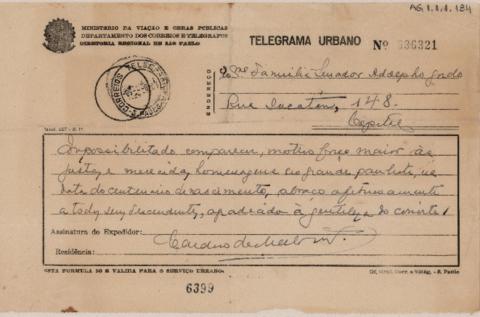 AG 1.1.1.184
MINISTERIO DA VIAÇÃO E OBRAS PUBLICAS
DEPARTAMENTO DOS CORREIOS E TELEGRAFOS
DIRETORIA REGIONAL DE SÃO PAULO
TELEGRAMA URBANO Nº 636321
ENDEREÇO
Familia Senador Adolpho Gordo
Rua Yucatan, 148.
Capital
Impossibilitado comparecer, motivo força maior ás
justas e merecidas homenagens ao grande paulista, na
data do centenario de nascimento, abraço afetuosamente
a todos seus descendentes, agradecido á gentileza do convite
Assinatura do Expedidor:
Cardoso de Mello
Residência:
ESTA FORMULA SÓ É VALIDA PARA O SERVIÇO URBANO.
6399